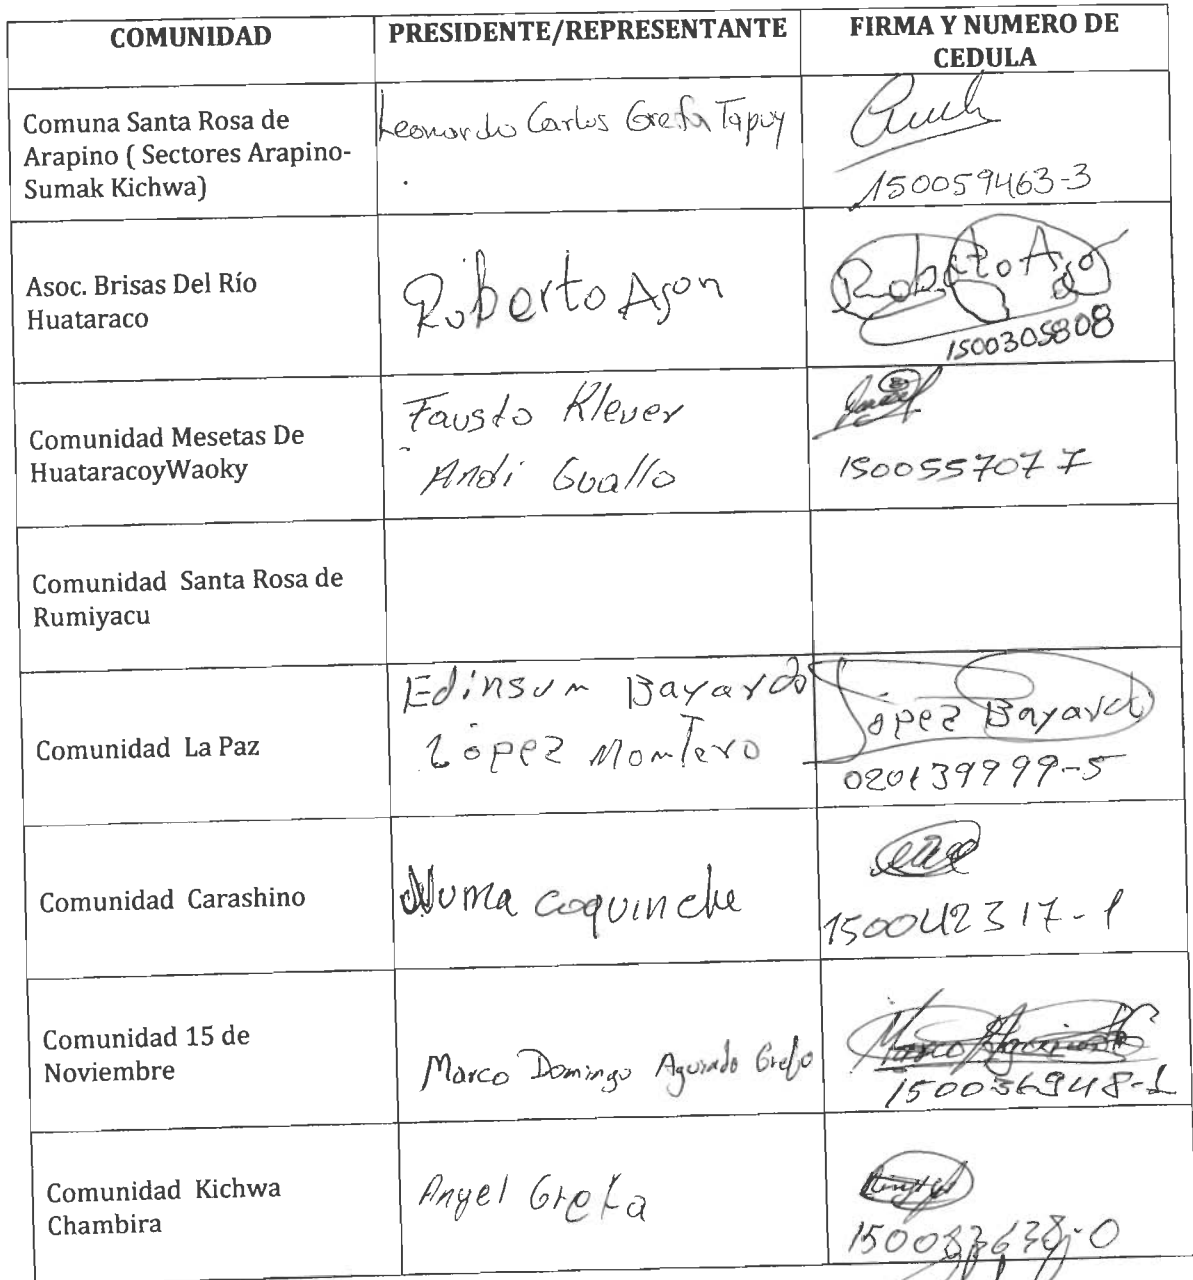 COMUNIDAD
PRESIDENTE/REPRESENTANTE
FIRMA Y NUMERO DE
CEDULA
Comuna Santa Rosa de
Arapino ( Sectores Arapino-
Sumak Kichwa)
Leonardo Carlos Grefa Tapuy
150059463-3
Asoc. Brisas Del Río
Huataraco
Roberto Ajon
Roberto Ajo
1500305808
Comunidad Mesetas De
HuataracoyWaoky
Fausto Klever
Andi Guallo
1500557077
Comunidad Santa Rosa de
Rumiyacu
Comunidad La Paz
Edinsum Bayardo
López Montero
López Bayardo
020139999-5
Comunidad Carashino
Numa coquinche
150042317-1
Comunidad 15 de
Noviembre
Marco Domingo Aguindo Grefa
Marco
150036948-1
Comunidad Kichwa
Chambira
Angel Grefa